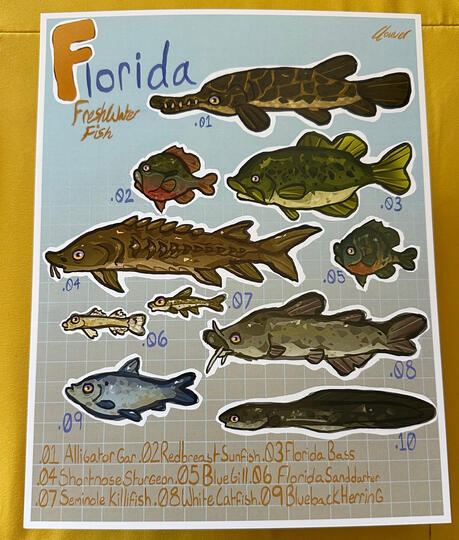 Florida
FreshWater
Fish
.01
.02
.03
.04
.05
.06
.07
.08
.09
.10
.01 Alligator Gar .02 Redbreast Sunfish .03 Florida Bass
.04 Shortnose Sturgeon .05 Blue Gill .06 Florida Sanddarter
.07 Seminole Killifish .08 White Catfish .09 Blueback Herring